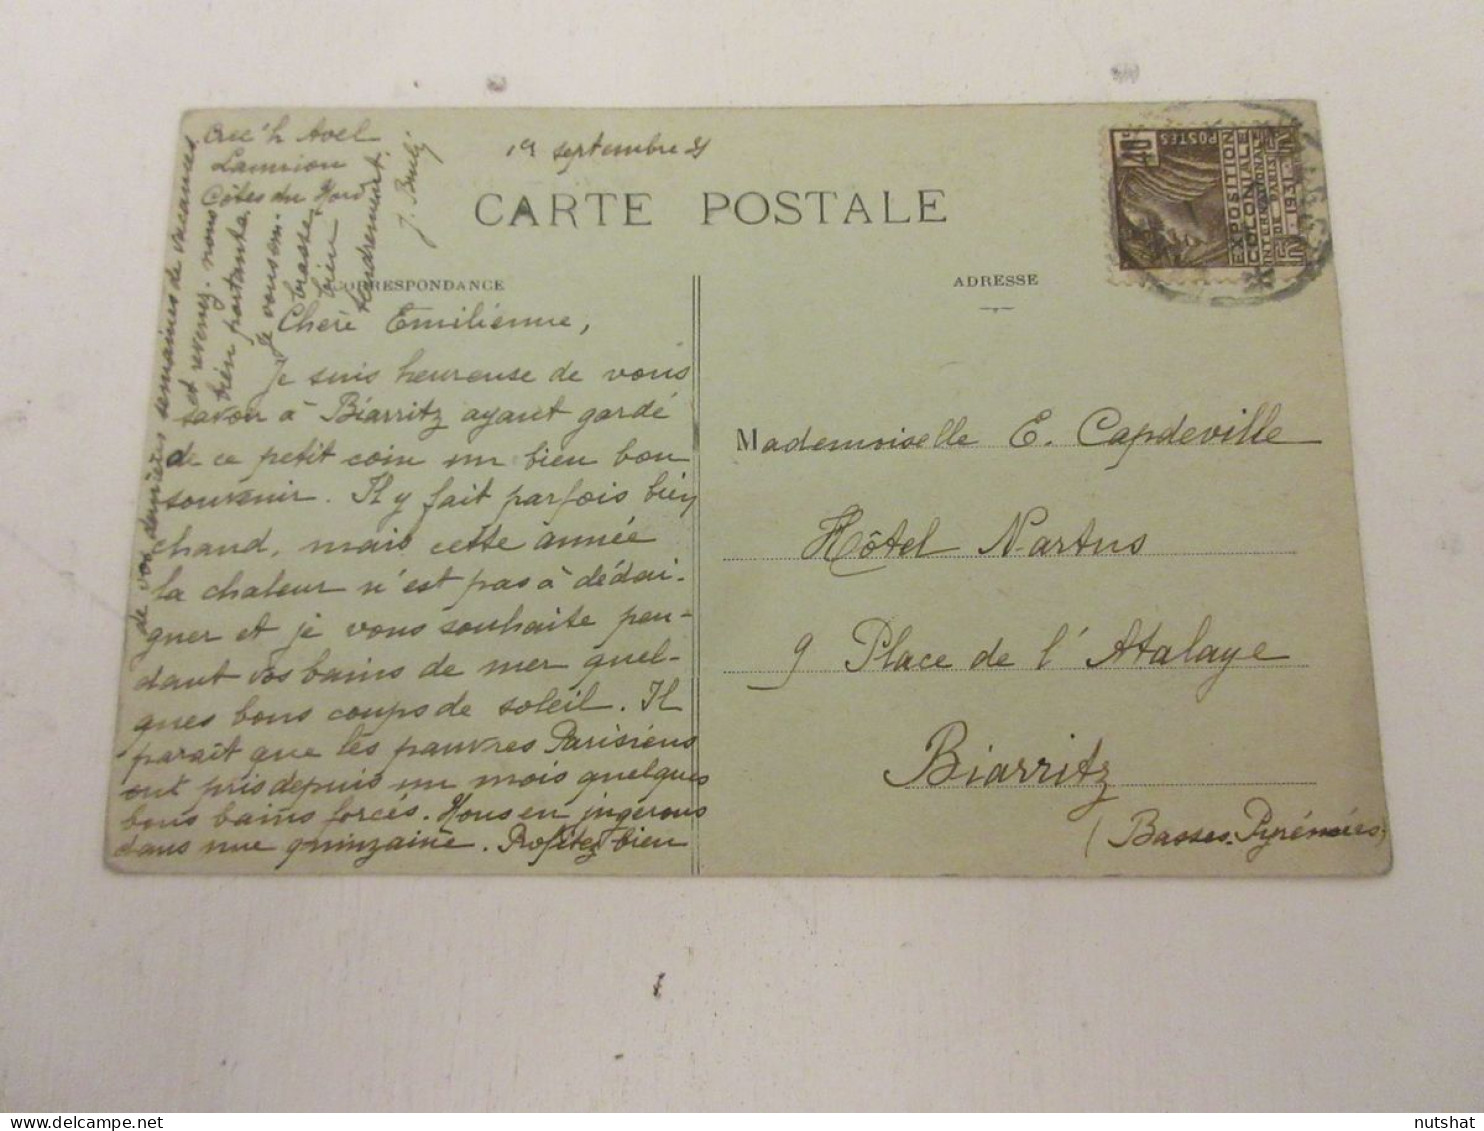 Crec'h Avel
Lannion
Côtes du Nord
19 septembre 31
CARTE POSTALE
CORRESPONDANCE
ADRESSE
40c
POSTES
EXPOSITION
COLONIALE
INTERNATIONALE
DE PARIS
1931
Cheré Emiliénne,
Je suis heureuse de vous
savoir à Biarritz ayant gardé
de ce petit coin un bien bon
souvenir. Il y fait parfois bien
chaud, mais cette année
la chaleur n'est pas à dédai-
gner et je vous souhaite pen-
dant vos bains de mer quel-
ques bons coups de soleil. Il
paraît que les pauvres Parisiens
ont pris depuis un mois quelques
bons bains forcés. Nous en jugerons
dans une quinzaine. Profitez bien
de vos dernières semaines de vacances
et revenez-nous
bien portante.
Je vous em-
brasse
bien
tendrement.
Mademoiselle E. Capdeville
Hôtel Nartus
9 Place de l'Atalaye
Biarritz
(Basses-Pyrénées)
nutshat